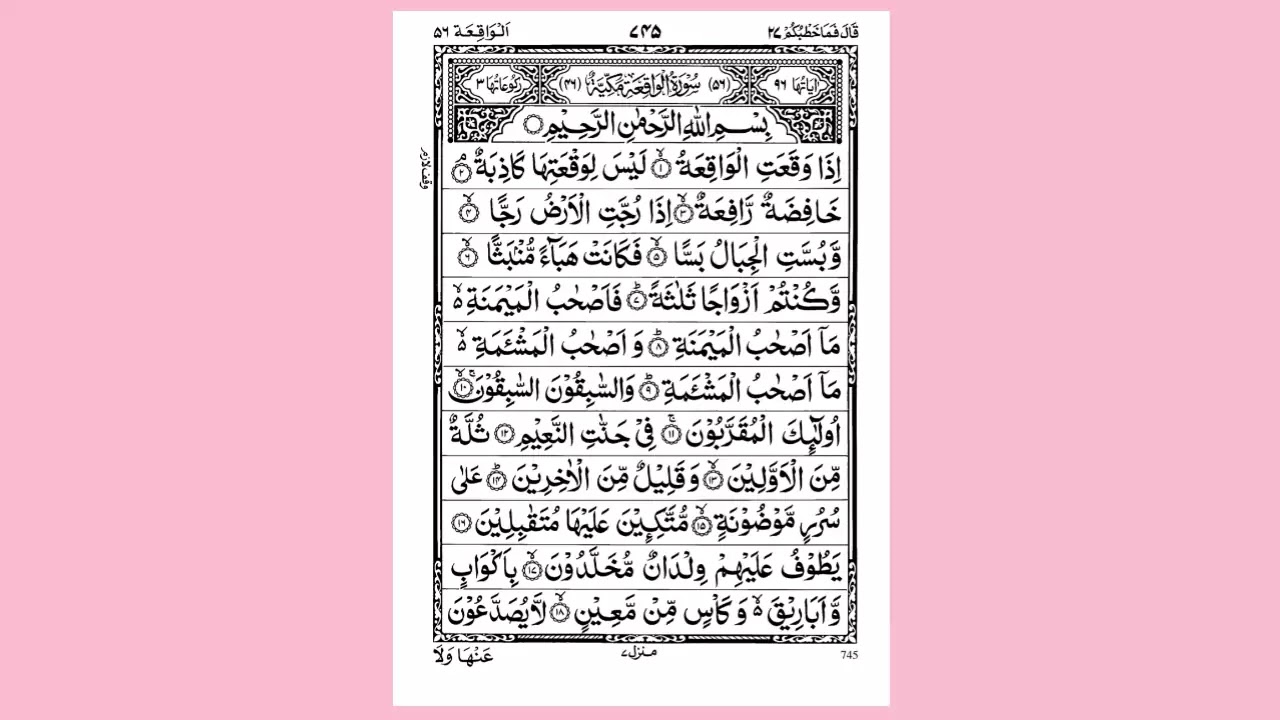 قَالَ فَمَا خَطْبُكُمْ ٢٧
٧٤٥
اَلْوَاقِعَة ٥٦
اٰيَاتُهَا ٩٦
(٥٦) سُوْرَةُ الْوَاقِعَةِ مَكِّيَّةٌ (٤٦)
رُكُوْعَاتُهَا ٣
بِسْمِ اللّٰهِ الرَّحْمٰنِ الرَّحِيْمِ
اِذَا وَقَعَتِ الْوَاقِعَةُ ۙ﴿١﴾ لَيْسَ لِوَقْعَتِهَا كَاذِبَةٌ ۘ﴿٢﴾
وقف لازم
خَافِضَةٌ رَّافِعَةٌ ۙ﴿٣﴾ اِذَا رُجَّتِ الْاَرْضُ رَجًّا ۙ﴿٤﴾
وَّبُسَّتِ الْجِبَالُ بَسًّا ۙ﴿٥﴾ فَكَانَتْ هَبَآءً مُّنْۢبَثًّا ۙ﴿٦﴾
وَّكُنْتُمْ اَزْوَاجًا ثَلٰثَةً ؕ﴿٧﴾ فَاَصْحٰبُ الْمَيْمَنَةِ ۙ۬
مَاۤ اَصْحٰبُ الْمَيْمَنَةِ ؕ﴿٨﴾ وَ اَصْحٰبُ الْمَشْـَٔمَةِ ۙ۬
مَاۤ اَصْحٰبُ الْمَشْـَٔمَةِ ؕ﴿٩﴾ وَالسّٰبِقُوْنَ السّٰبِقُوْنَ ۚۙ﴿١٠﴾
اُولٰٓئِكَ الْمُقَرَّبُوْنَ ۚ﴿١١﴾ فِيْ جَنّٰتِ النَّعِيْمِ ﴿١٢﴾ ثُلَّةٌ
مِّنَ الْاَوَّلِيْنَ ۙ﴿١٣﴾ وَقَلِيْلٌ مِّنَ الْاٰخِرِيْنَ ؕ﴿١٤﴾ عَلٰى
سُرُرٍ مَّوْضُوْنَةٍ ۙ﴿١٥﴾ مُّتَّكِـِٕيْنَ عَلَيْهَا مُتَقٰبِلِيْنَ ﴿١٦﴾
يَطُوْفُ عَلَيْهِمْ وِلْدَانٌ مُّخَلَّدُوْنَ ۙ﴿١٧﴾ بِاَكْوَابٍ
وَّاَبَارِيْقَ ۙ۬ وَكَاْسٍ مِّنْ مَّعِيْنٍ ۙ﴿١٨﴾ لَّا يُصَدَّعُوْنَ
عَنْهَا وَلَا
منزل ٧
745